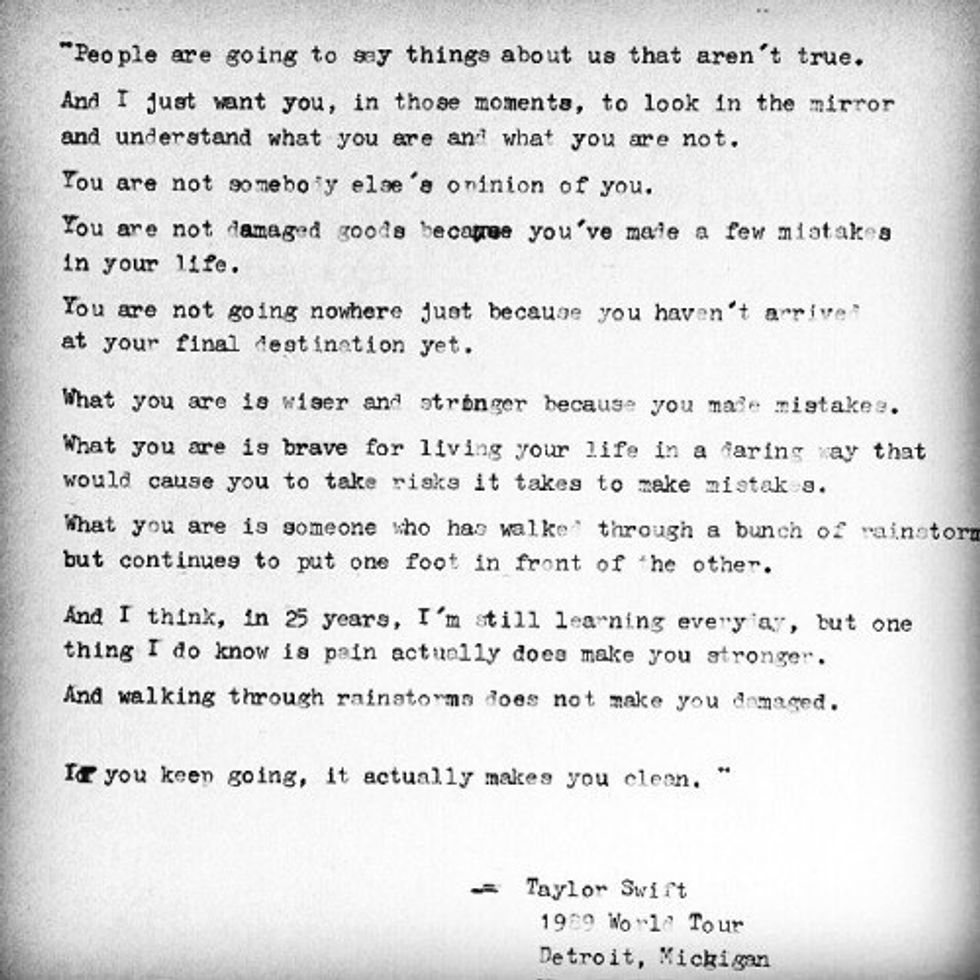 "People are going to say things about us that aren't true.
And I just want you, in those moments, to look in the mirror
and understand what you are and what you are not.
You are not somebody else's opinion of you.
You are not damaged goods because you've made a few mistakes
in your life.
You are not going nowhere just because you haven't arrived
at your final destination yet.
What you are is wiser and stronger because you made mistakes.
What you are is brave for living your life in a daring way that
would cause you to take risks it takes to make mistakes.
What you are is someone who has walked through a bunch of rainstorm
but continues to put one foot in front of the other.
And I think, in 25 years, I'm still learning everyday, but one
thing I do know is pain actually does make you stronger.
And walking through rainstorms does not make you damaged.
If you keep going, it actually makes you clean. "
- Taylor Swift
1989 World Tour
Detroit, Michigan